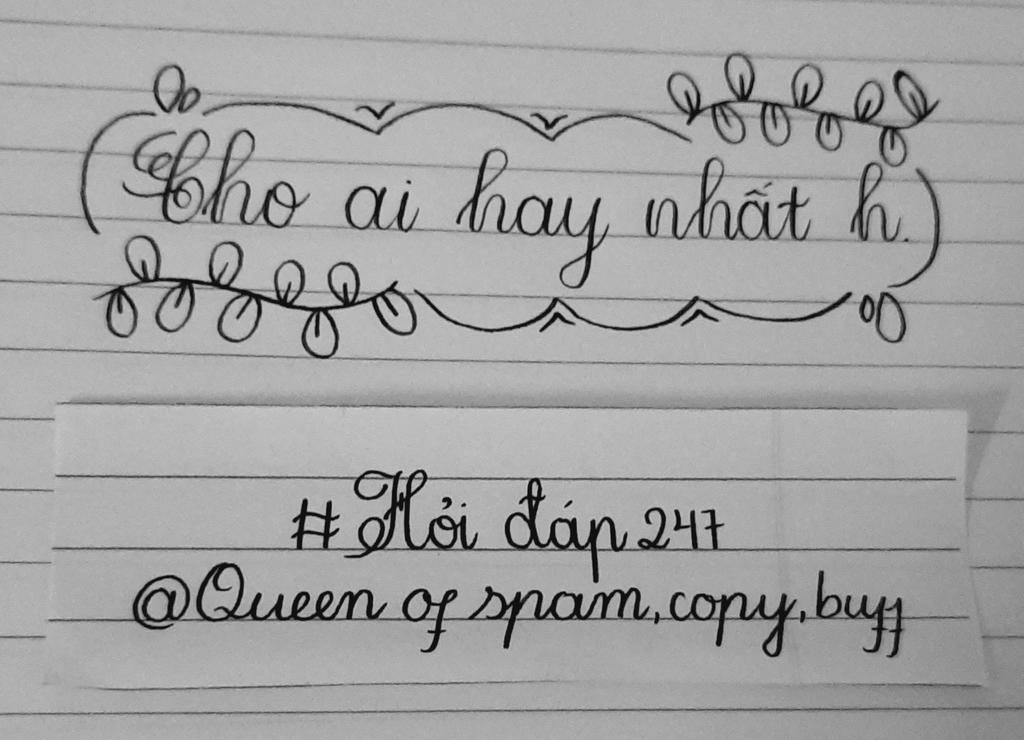 (Cho ai hay nhất h.)
#Hỏi đáp 247
@Queen of spam, copy, buff